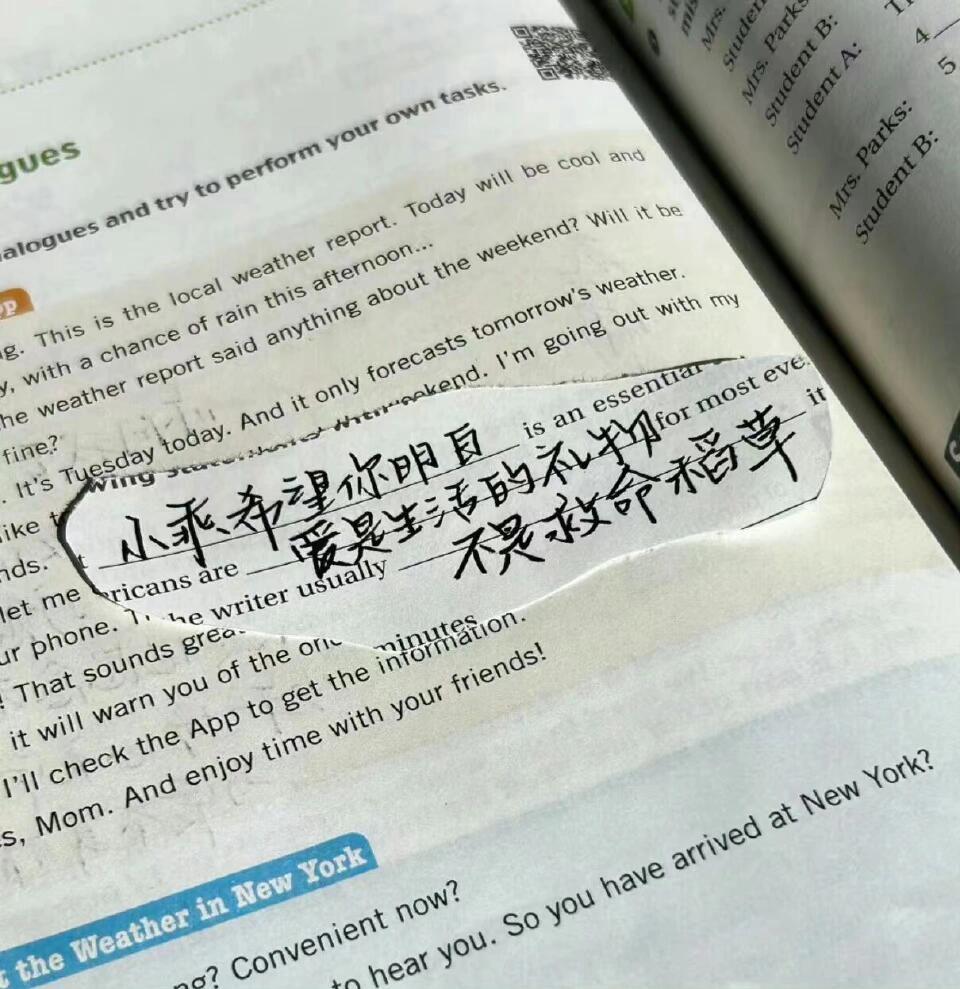 gues
alogues and try to perform your own tasks.
g. This is the local weather report. Today will be cool and
y, with a chance of rain this afternoon...
he weather report said anything about the weekend? Will it be
fine?
. It's Tuesday today. And it only forecasts tomorrow's weather.
ekend. I'm going out with my
like t
nds.
let me
ur phone.
! That sounds grea
it will warn you of the on
I'll check the App to get the information.
s, Mom. And enjoy time with your friends!
is an essential
小乖希望你明白
for most eve
爱是生活的礼物
it
ericans are
不是救命稻草
he writer usually
minutes
t the Weather in New York
ng? Convenient now?
to hear you. So you have arrived at New York?
Mrs.
Student
Mrs. Parks
Student B:
Student A:
Mrs. Parks:
Student B:
4
5